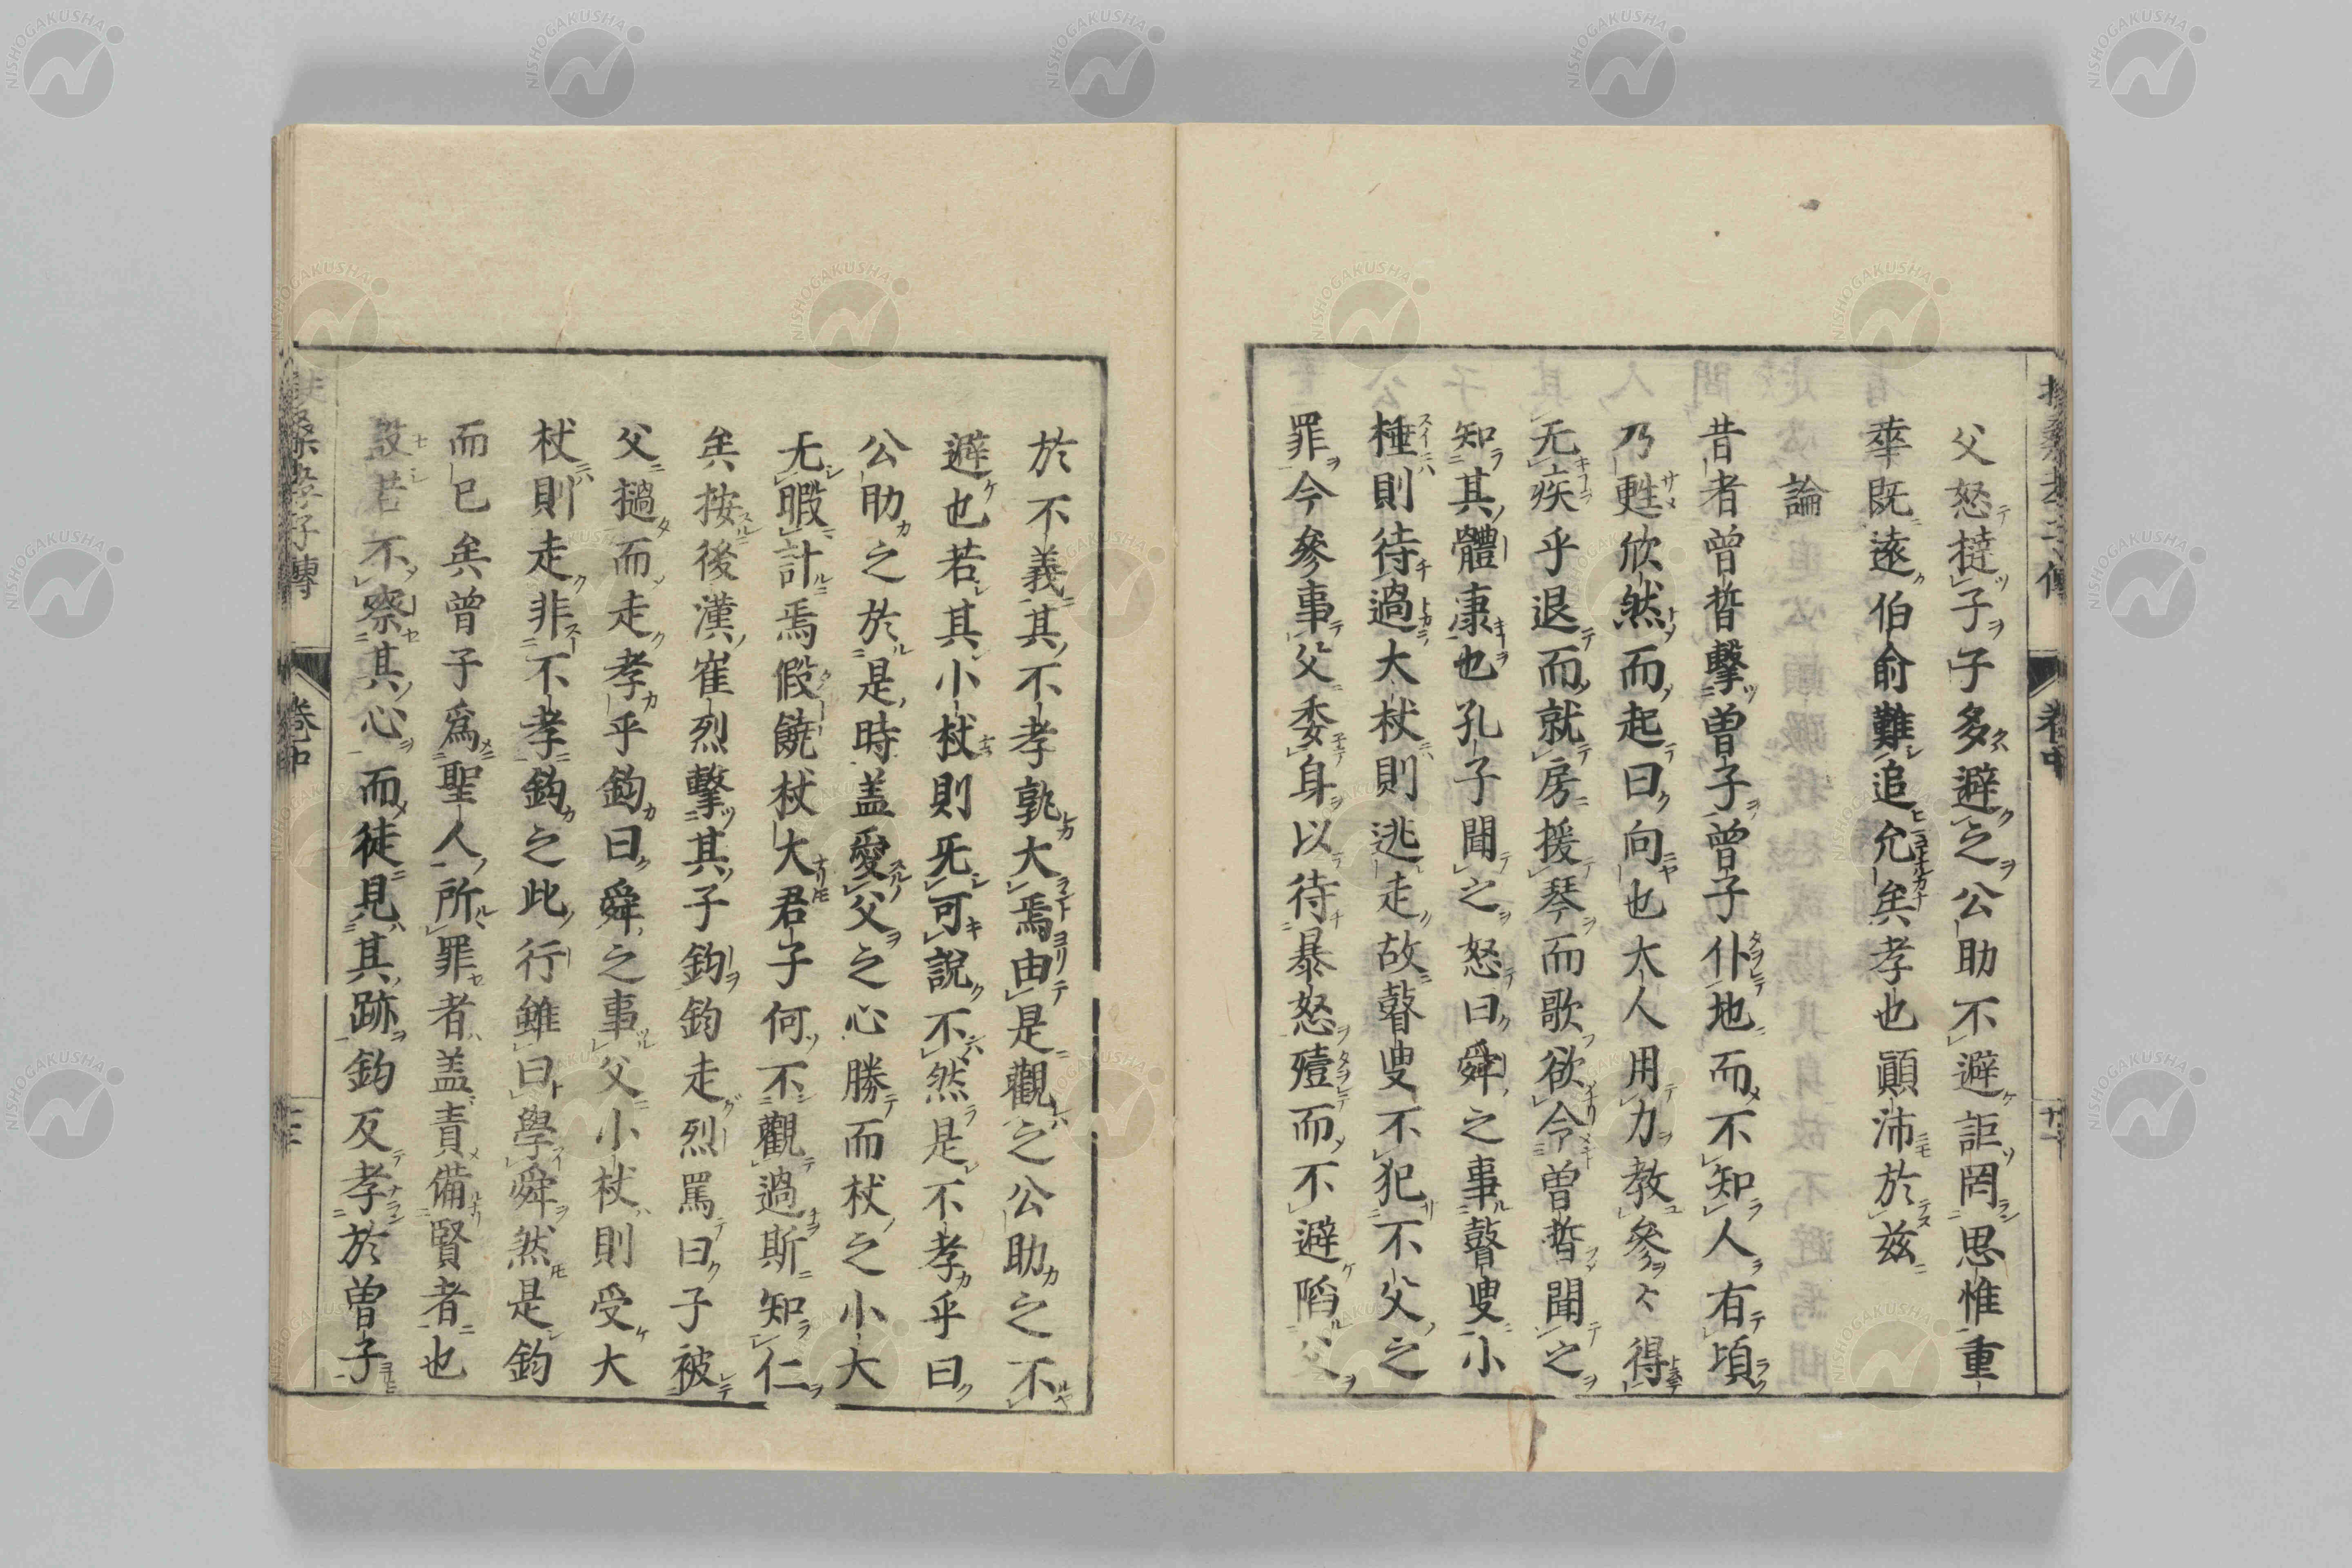 父怒撻子子多避之公助不避詎罔思惟重
華既遠伯俞難追允矣孝也顚沛於茲
論
昔者曾晳擊曾子曾子仆地而不知人有頃
乃甦欣然而起曰向也大人用力教參々得
无疾乎退而就房援琴而歌欲令曾晳聞之
知其體康也孔子聞之怒曰舜之事瞽叟小
棰則待過大杖則逃走故瞽叟不犯不父之
罪今參事父委身以待暴怒殪而不避陷父
於不義其不孝孰大焉由是觀之公助之不
避也若其小杖則无可說不然是不孝乎曰
公助之於是時盖愛父之心勝而杖之小大
无暇計焉假饒杖大君子何不觀過斯知仁
矣按後漢崔烈擊其子鈞鈞走烈罵曰子被
父撾而走孝乎鈞曰舜之事父小杖則受大
杖則走非不孝鈞之此行雖曰學舜然是鈞
而已矣曾子爲聖人所罪者盖責備賢者也
設若不察其心而徒見其跡鈞反孝於曾子
桑孝子傳
卷中
NISHOGAKUSHA